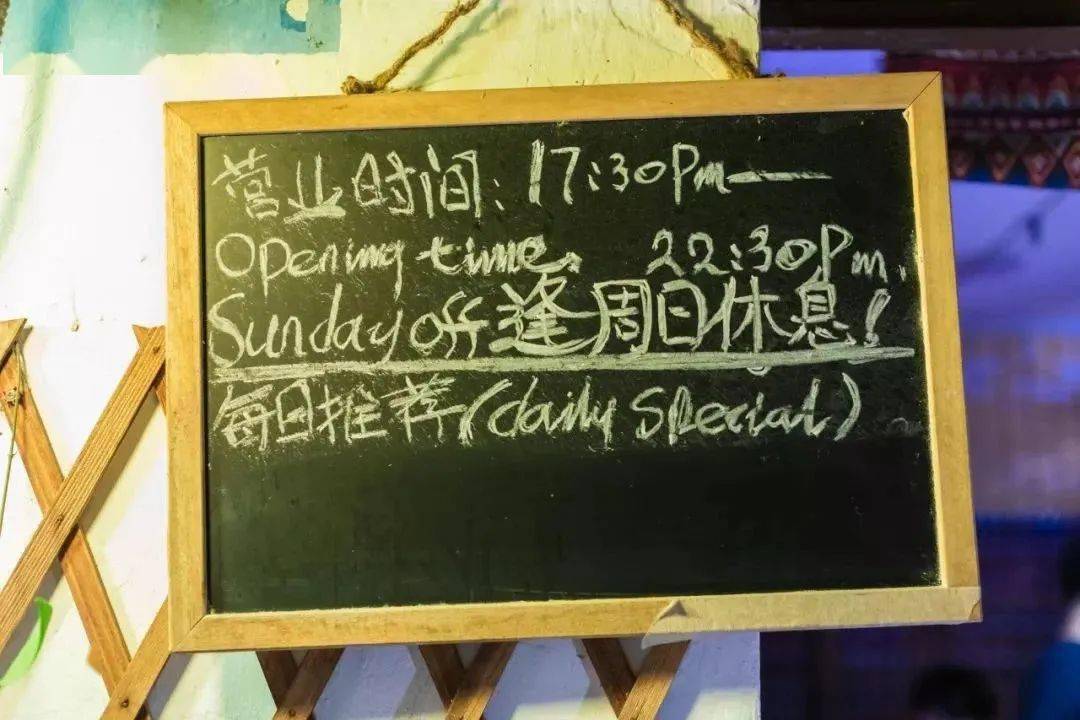 营业时间: 17:30Pm—
Opening time. 22:30Pm.
Sunday off 逢周日休息!
每日推荐(daily special)